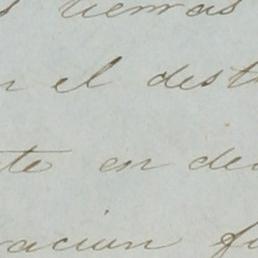 s tierras
n el dest
te en de
racion fu